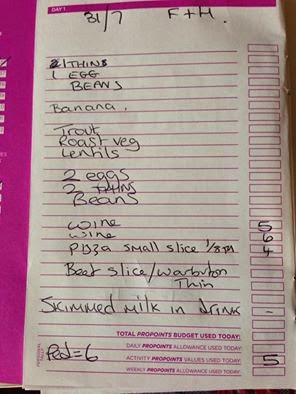 DAY 1
31/7 F+H.
1 THINS
1 EGG
BEANS
Banana.
Trout
Roast veg
Lentils
2 eggs
2 THINS
Beans
wine 5
wine 6
Pizza small slice 4
Beef slice/warburton
Thin
Skimmed milk in drink -
TOTAL PROPOINTS BUDGET USED TODAY:
DAILY PROPOINTS ALLOWANCE USED TODAY:
Ped=6 ACTIVITY PROPOINTS VALUES USED TODAY: 5
WEEKLY PROPOINTS ALLOWANCE USED TODAY: